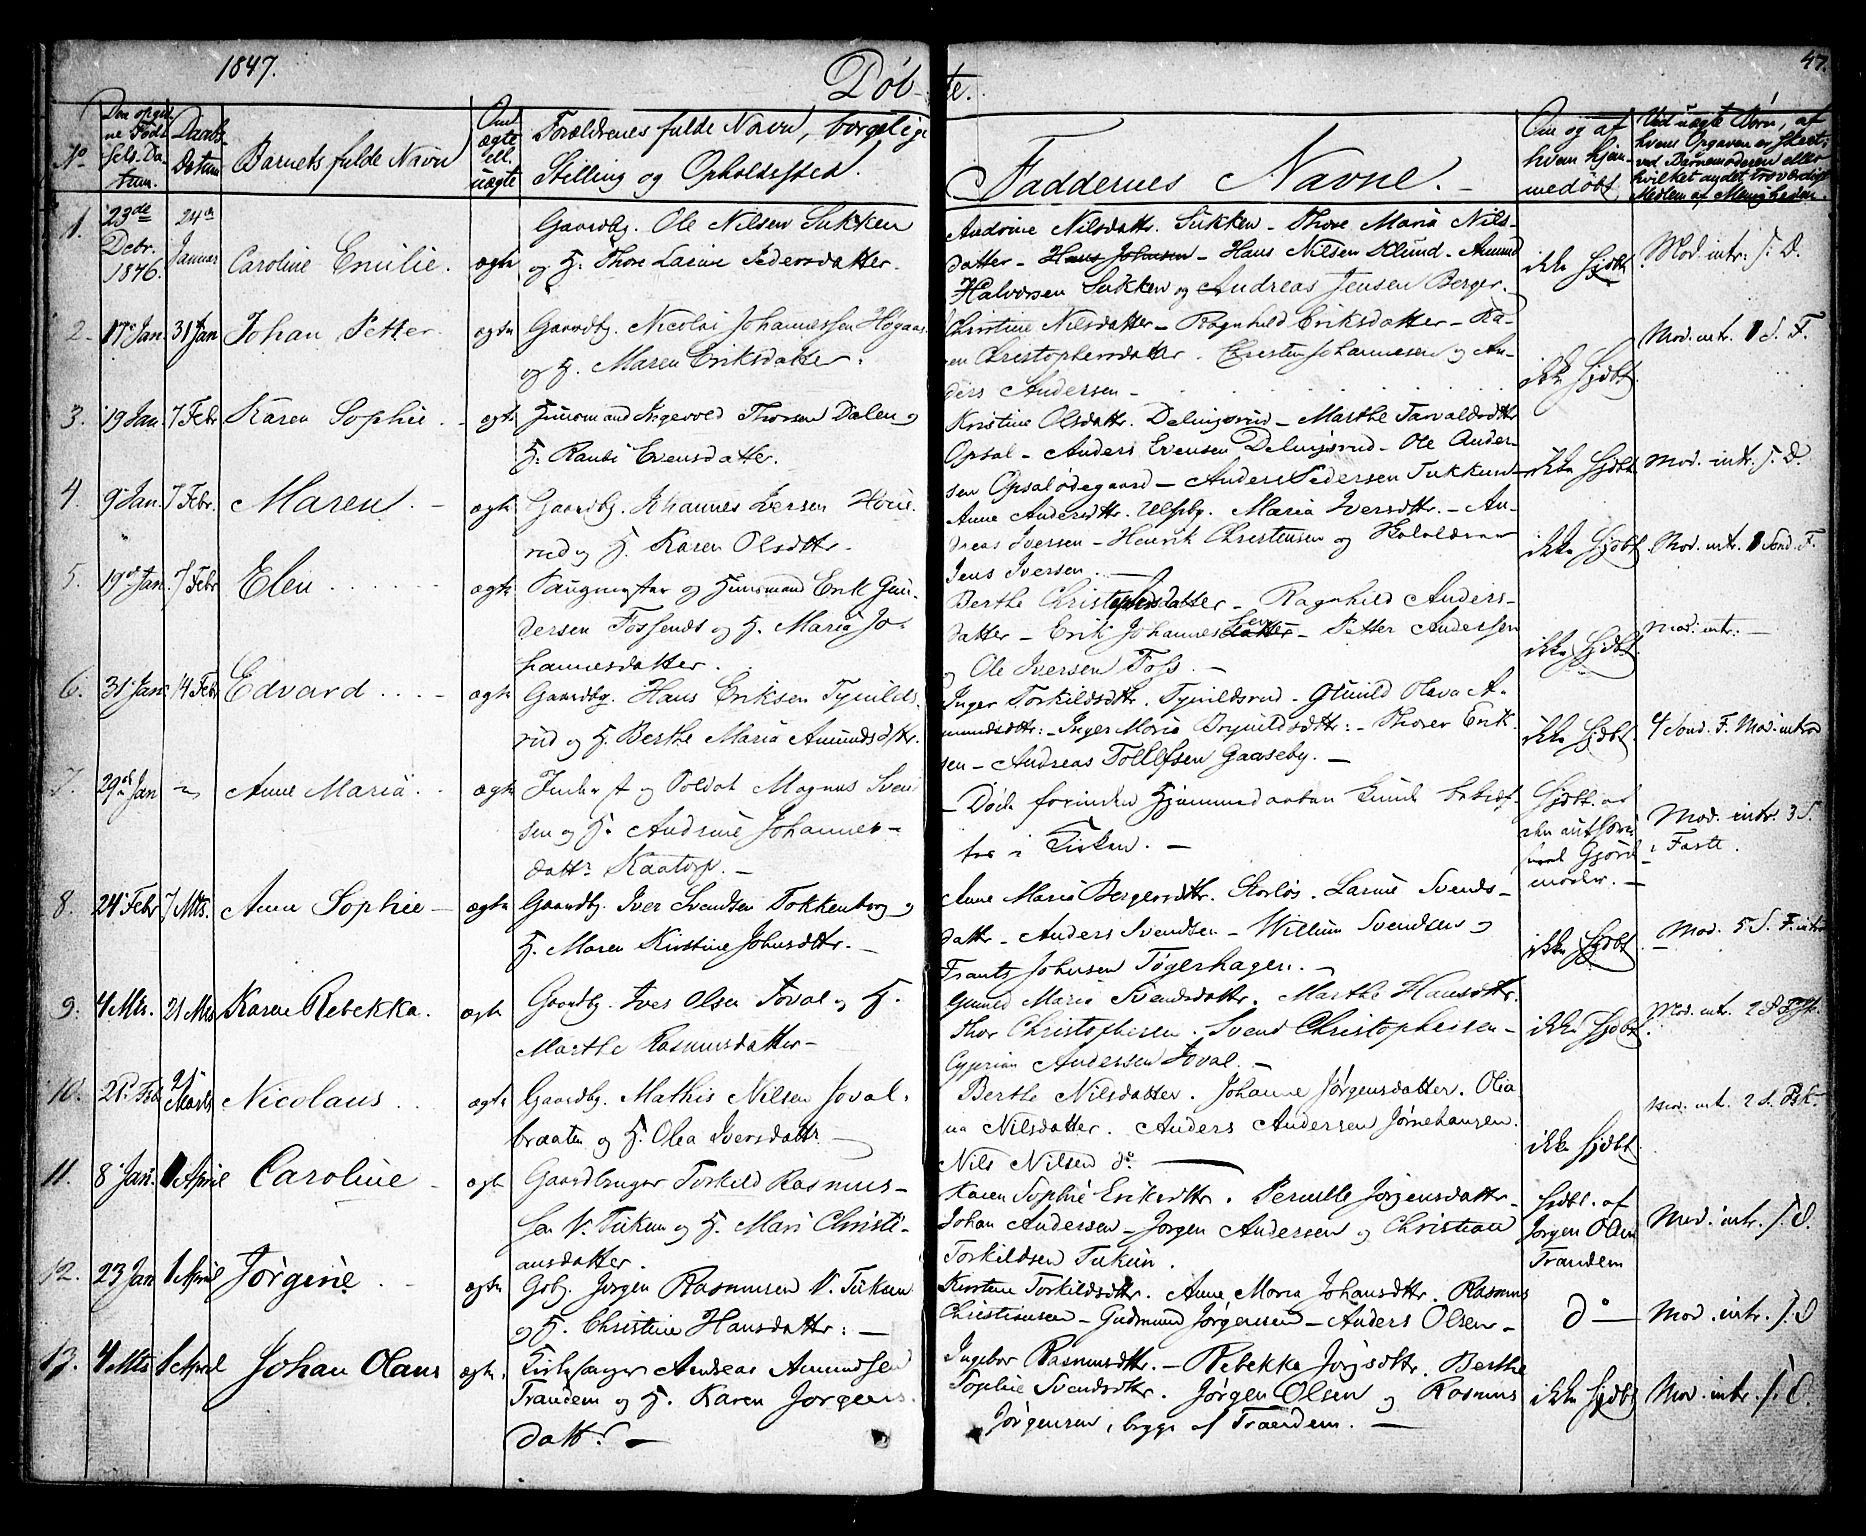 1847.
Døb-te.
47.
No
Den opgivne Fødsels-Datum.
Daabs-Datum
Barnets fulde Navn
Om ægte ell. uægte
Forældrenes fulde Navn, borgelige
Stilling og Opholdssted.
Faddernes Navne.
Om og af hvem hjemmedøbt
Ved uægte Børn, af
1. 23de Decbr. 1846. 24de Januar Caroline Emilie. ægte
Gaardbg. Ole Nilsen Sukken
og H. Thore Laine Pedersdatter.
Andrine Nilsdattr. Sukken - Thore Maria Nils-
datter - Hans Johnsen - Hans Nilsen Klund - Amund
Halvorsen Sukken og Andreas Jensen Berger.
ikke Hjdbt
Mod. intr. s. D.
2. 17 Jan 31 Jan Johan Petter ægte
Gaardbg. Nicolai Johannessen Høgaas
og H. Maren Eriksdatter.
Christine Nilsdatter - Ragnhild Eriksdatter - Ka-
ren Christophersdatter. Christen Johannesen og An-
ders Andersen -
ikke Hjdbt
Mod. intr. 1 S. F.
3. 19 Jan. 7 Febr Karen Sophie. ægte
Huusmand Ingevold Thorsen Dalen og
H. Randi Evensdatter.
Kristine Olsdattr. Delingsrud - Marthe Tarvaldsdttr
Opsal - Anders Evensen Delingsrud - Ole Ander-
sen Opsalødegaard - Anders Pedersen Tukkun
ikke Hjdbt
Mod. intr. s. D.
4. 9 Jan. 7 Febr. Maren. ægte
Gaardbg. Johannes Iversen Houe-
rud og H. Karen Olsdttr.
Anne Andersdttr. Ulfsby. Maria Iversdttr. - An-
dreas Iversen - Henrik Christensen og
Jens Iversen.
ikke Hjdbt
Mod. intr. 1 Sond. F.
5. 19de Jan. 7 Febr Elen ægte
Saugmester og Huusmand Erik Gun-
dersen Fossends og H. Maria Jo-
hannesdatter.
Berthe Christophersdatter - Ragnhild Anders-
datter - Erik Johannessen - Petter Andersen
og Ole Iversen Foss. -
ikke Hjdbt
Mod. intr. -
6. 31 Jan. 14 Febr Edvard ægte
Gaardbg. Hans Eriksen Tynilds-
rud og H. Berthe Maria Amundsdttr.
Inger Torkildsdttr. Tynildsrud - Gunild Olava A-
mundsdttr: - Inger Maria Brynildsdttr: - Thorer Erik-
sen - Andreas Tollefsen Gaaseby. -
ikke Hjdbt
4 Sond. F. Mod. introd
7. 29de Jan Anne Maria. ægte
Inderst og Soldat Magnus Svend-
sen og H. Andrine Johannes-
dattr Kaatorp. -
- Døde forinden Hjemmedaaben kunde bekræf-
tes i Kirken. -
Hjdbt. af
Mod. intr. 3 S.
i Faste.
8. 24 Febr 7 Mts. Anne Sophie - ægte
Gaardbg. Iver Svendsen Tokkenborg og
H. Maren Kirstine Johnsdttr. -
Anne Maria Bergersdttr. Korløs. Larine Svends-
dattr - Anders Svendsen - Willum Svendsen og
Frantz Johnsen Tøgerhagen. -
ikke Hjdbt
Mod. 5 S. F. intr
9. 4 Mts. 21 Mts Karen Rebekka. ægte
Gaardbg. Iver Olsen Joval og H.
Marthe Rasmusdatter -
Gunild Maria Svendsdatter. Marthe Hansdttr.
Thor Christophersen. Svend Christophersen -
Cyprian Andersen Joval. -
ikke Hjdbt
Mod. intr. 2 S.
10. 21 Feb 21 Marts Nicolaus ægte
Gaardbg. Mathis Nilsen Joval-
braaten og H. Olea Iversdattr. -
Berthe Nilsdatter. Johanne Jørgensdatter. Olia
na Nilsdatter. Anders Andersen Jørnehaugen.
Nils Nilsen do. -
ikke Hjdbt
Mod. intr. 2 S. Psk.
11. 8 Jan. 1 April Caroline ægte
Gaardbruger Torkild Rasmus-
sen V. Tukun og H. Mari Christi-
ansdatter.
Karen Sophie Eriksdttr. Pernille Jørgensdatter -
Johan Andersen - Jørgen Andersen og Christian
Torkildsen Tukun.
Hjdbt. af
Jørgen Olsen
Trandem
Mod. intr. s. D.
12. 23 Jan 1 April Jørgine ægte
Gbg. Jørgen Rasmusen V. Tukun
og H. Christine Hansdatter: -
Kirstine Torkildsdttr. Anne Maria Johansdttr. Rasmus
Christiansen - Gudmund Jørgensen - Anders Olsen -
do -
Mod. intr. s. D
13. 4 Mts 1 April Johan Olaus ægte
Kirkesanger Andreas Amundsen
Trandem og H. Karen Jørgens-
datt. -
Ingebor Rasmusdttr. - Rebekka Jørgsdttr. Berthe
Sophie Svendsdttr. Jørgen Olsen og Rasmus
Jørgensen, begge af Trandem. -
ikke Hjdbt
Mod. intr. s. D.